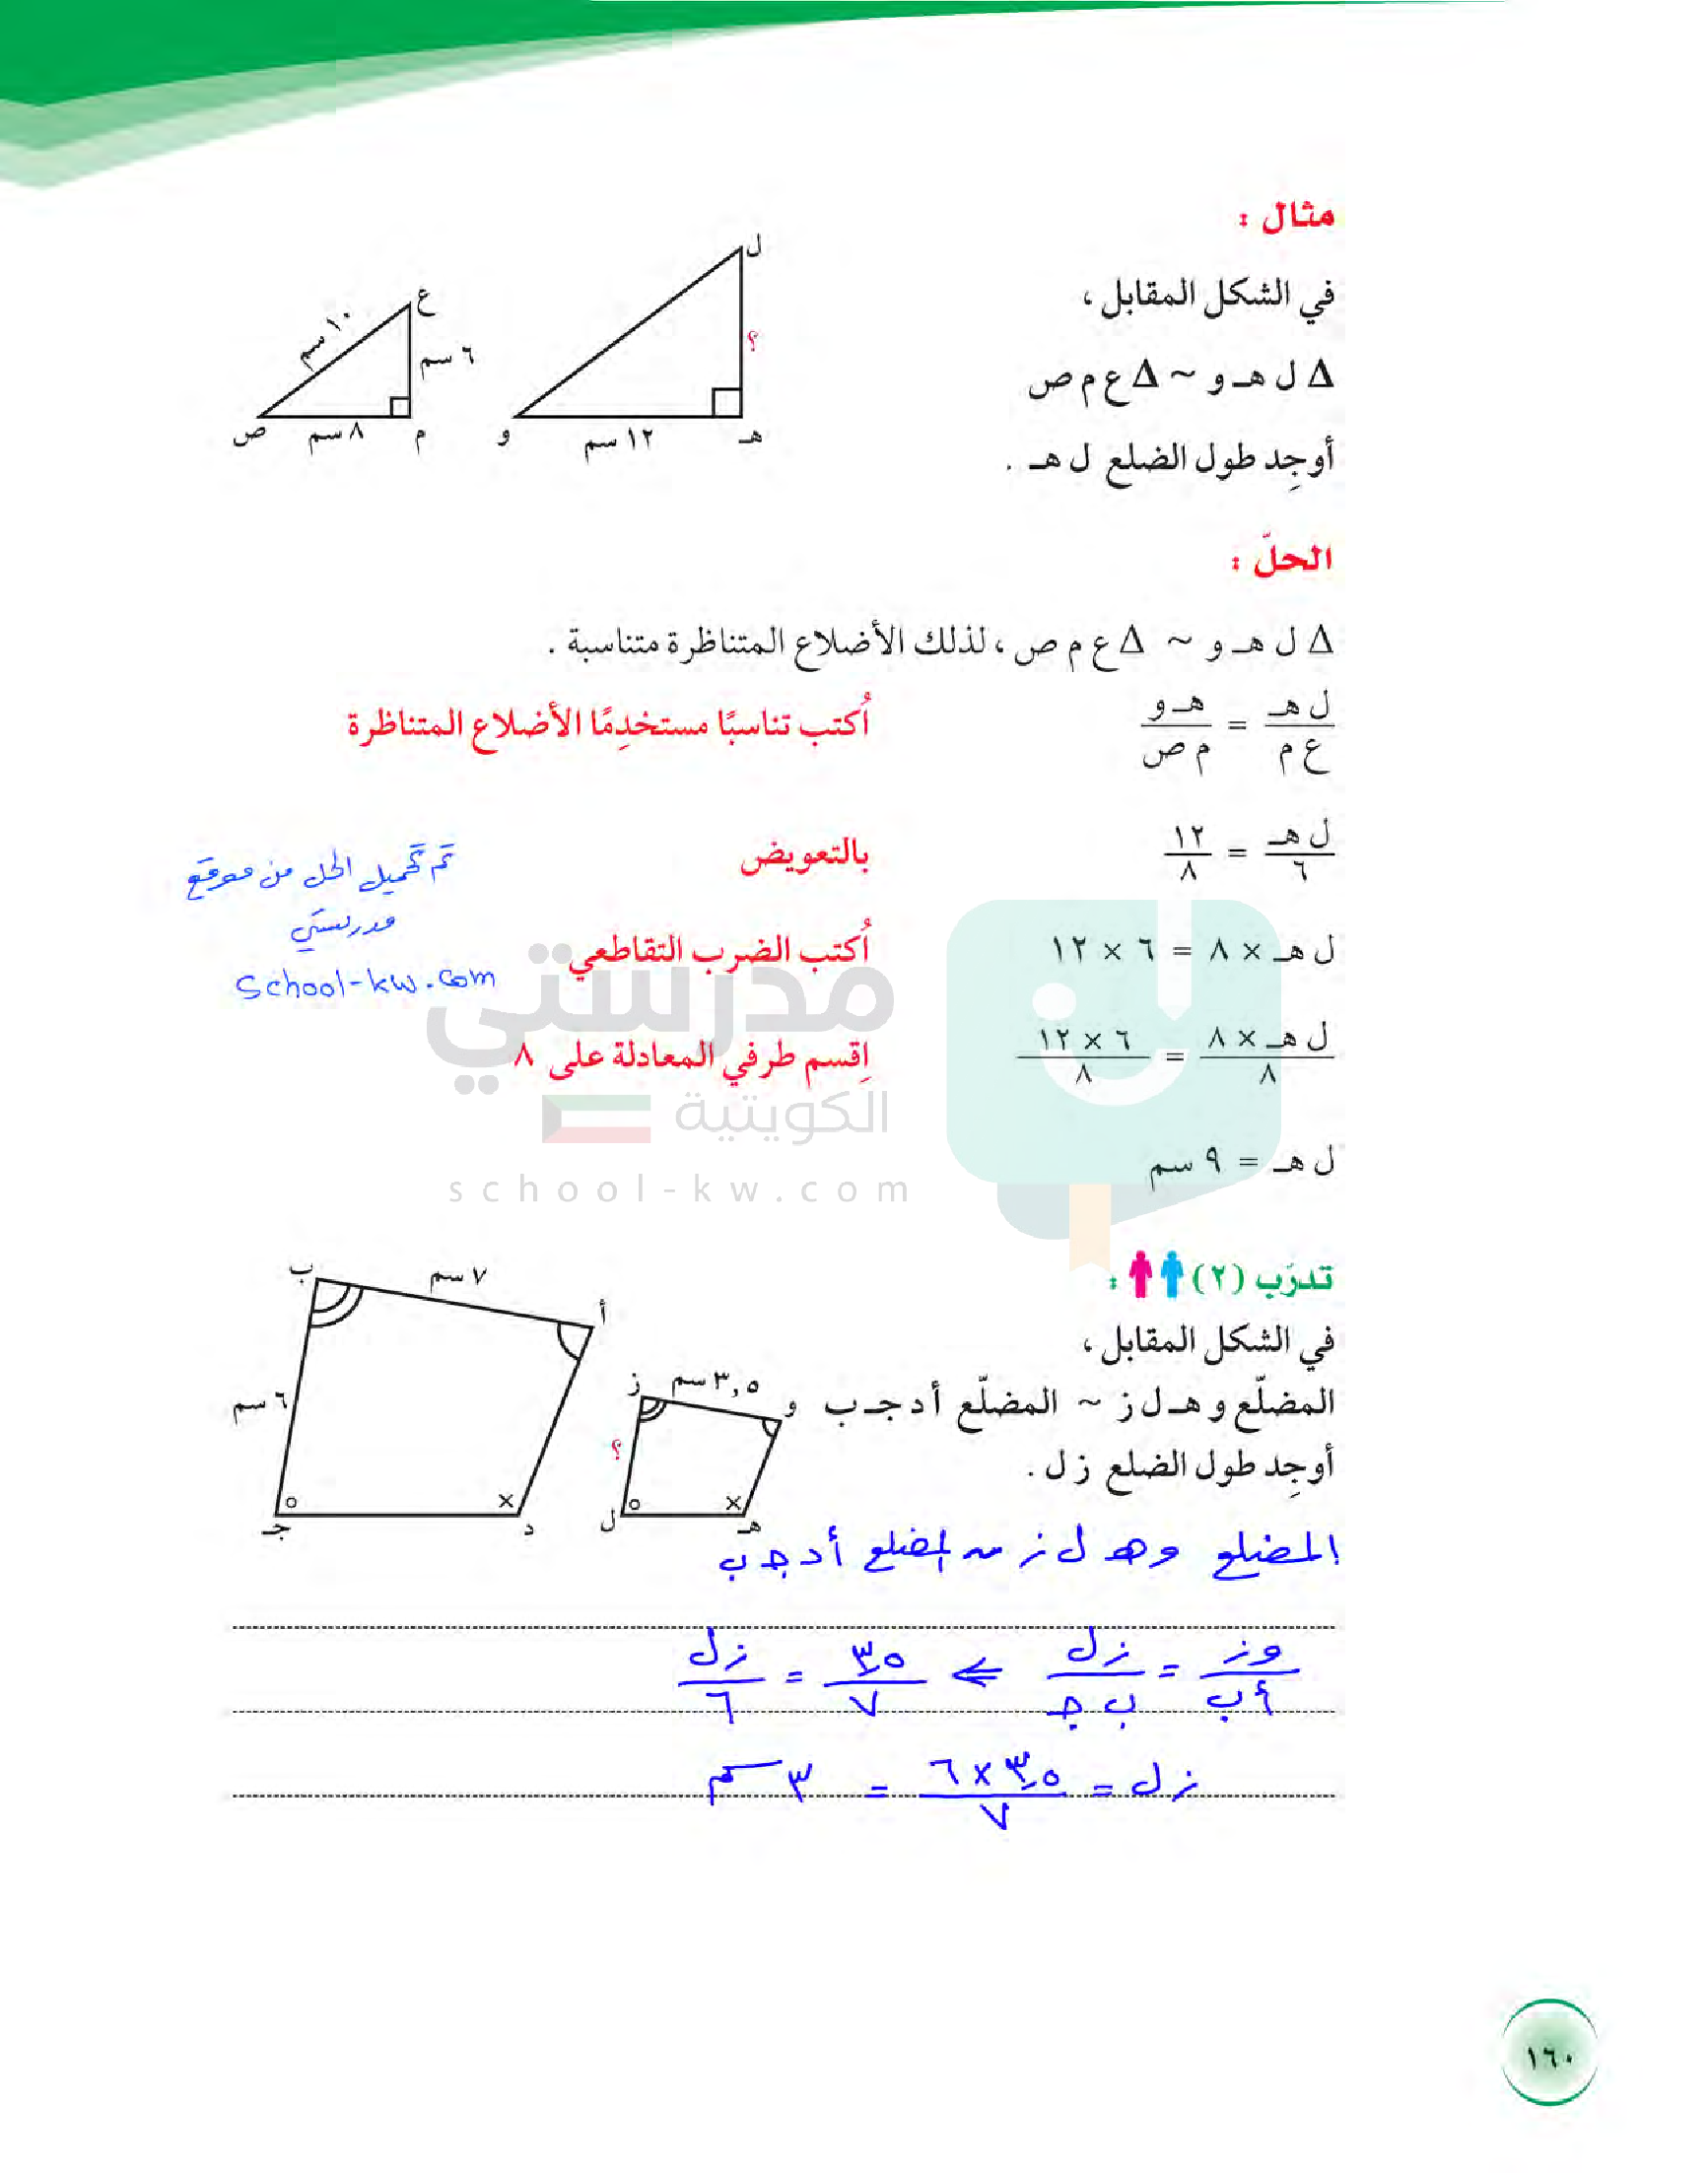 مثال :
في الشكل المقابل ،
Δ ل هـ و ~ Δ ع م ص
أوجِد طول الضلع ل هـ .
ل
؟
هـ
١٢ سم
و
ع
١٠ سم
٦ سم
م
٨ سم
ص
الحلّ :
Δ ل هـ و ~ Δ ع م ص ، لذلك الأضلاع المتناظرة متناسبة .
ل هـ / ع م = هـ و / م ص أُكتب تناسبًا مستخدِمًا الأضلاع المتناظرة
ل هـ / ٦ = ١٢ / ٨ بالتعويض
تم تحميل الحل من موقع
مدرستي
school-kw.com
ل هـ × ٨ = ٦ × ١٢ أُكتب الضرب التقاطعي
ل هـ × ٨ / ٨ = ٦ × ١٢ / ٨ اِقسم طرفي المعادلة على ٨
ل هـ = ٩ سم
مدرستي
الكويتية
school-kw.com
تدرّب (٢) :
في الشكل المقابل ،
المضلّع و هـ ل ز ~ المضلّع أ د جـ ب
أوجِد طول الضلع ز ل .
ب
٧ سم
أ
٦ سم
جـ
د
ز
٣,٥ سم
و
؟
ل
هـ
المضلع و هـ ل ز ~ المضلع أ د جـ ب
و ز / أ ب = ز ل / ب جـ ⇐ ٣,٥ / ٧ = ز ل / ٦
ز ل = ٣,٥ × ٦ / ٧ = ٣ سم
١٦٠